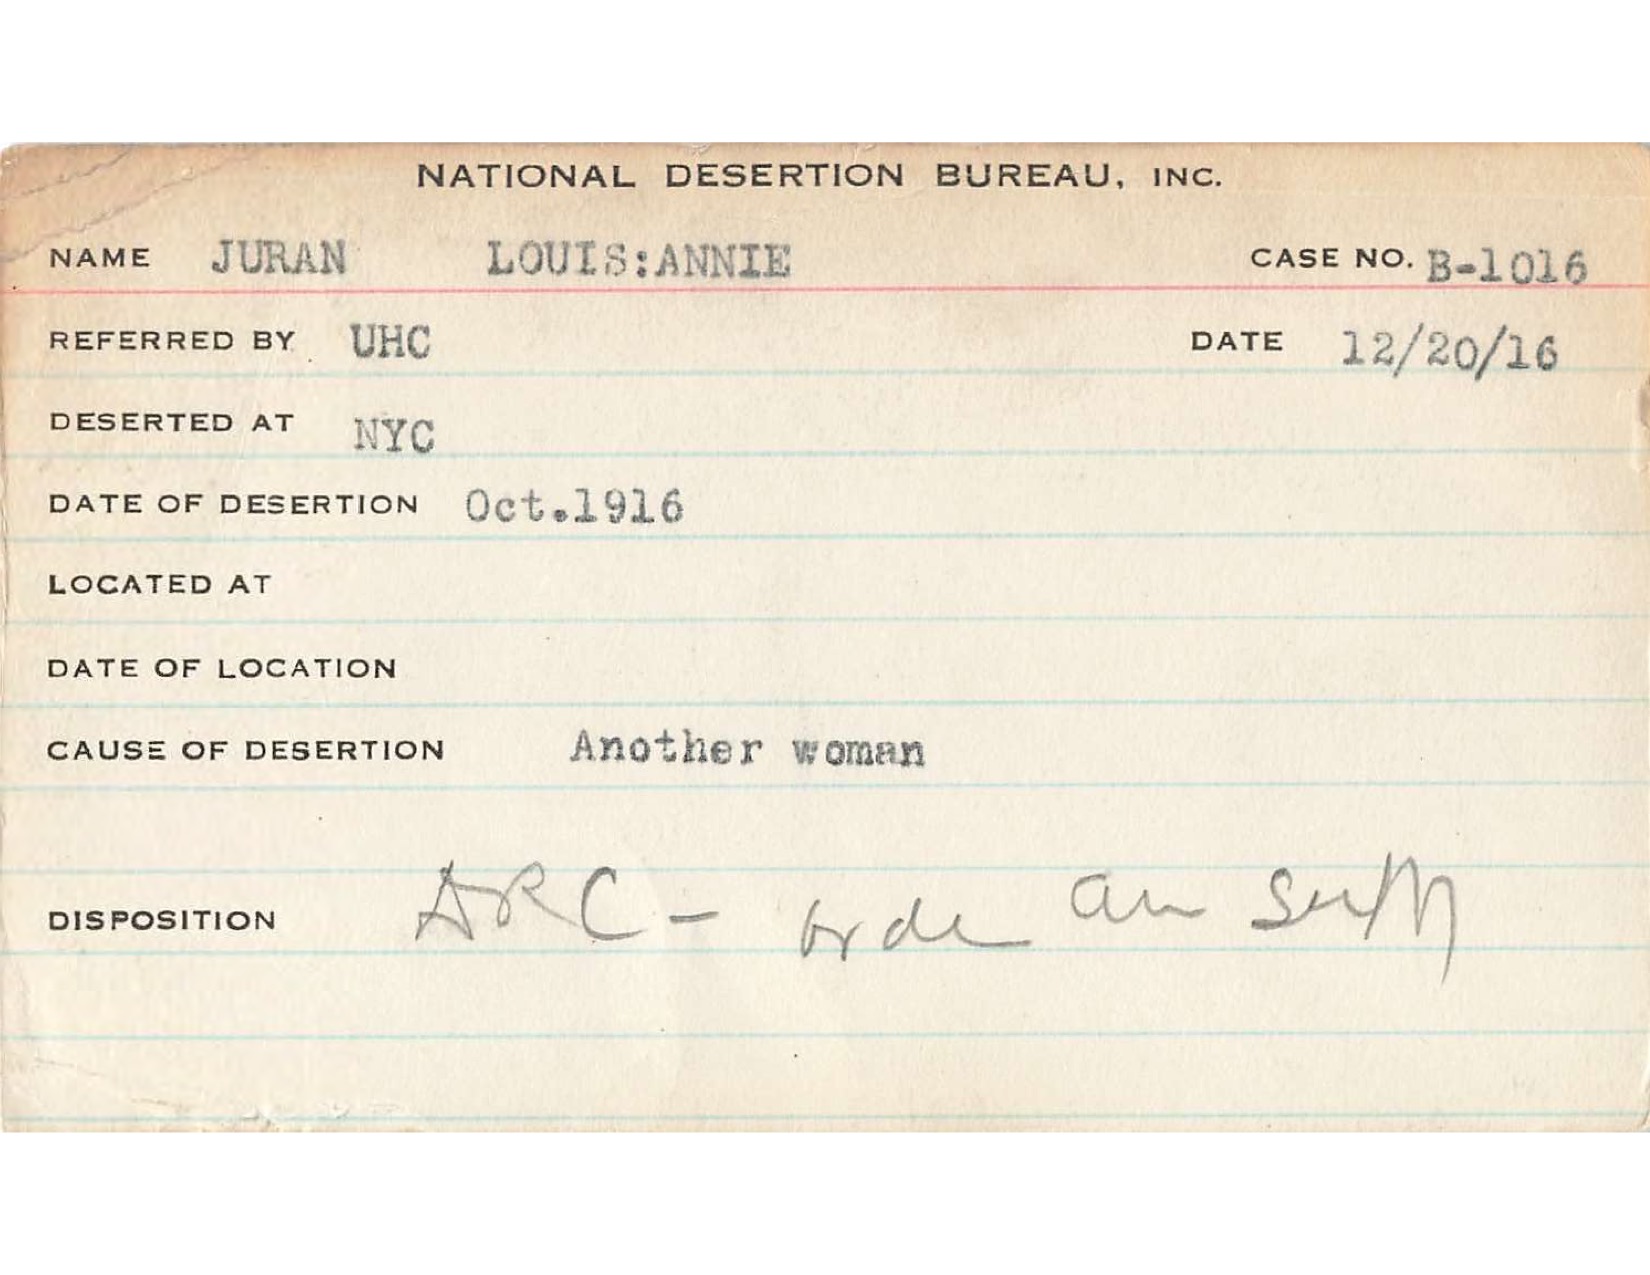 NATIONAL DESERTION BUREAU, INC.
NAME JURAN LOUIS:ANNIE CASE NO. B-1016
REFERRED BY UHC DATE 12/20/16
DESERTED AT NYC
DATE OF DESERTION Oct.1916
LOCATED AT
DATE OF LOCATION
CAUSE OF DESERTION Another woman
DISPOSITION DRC -